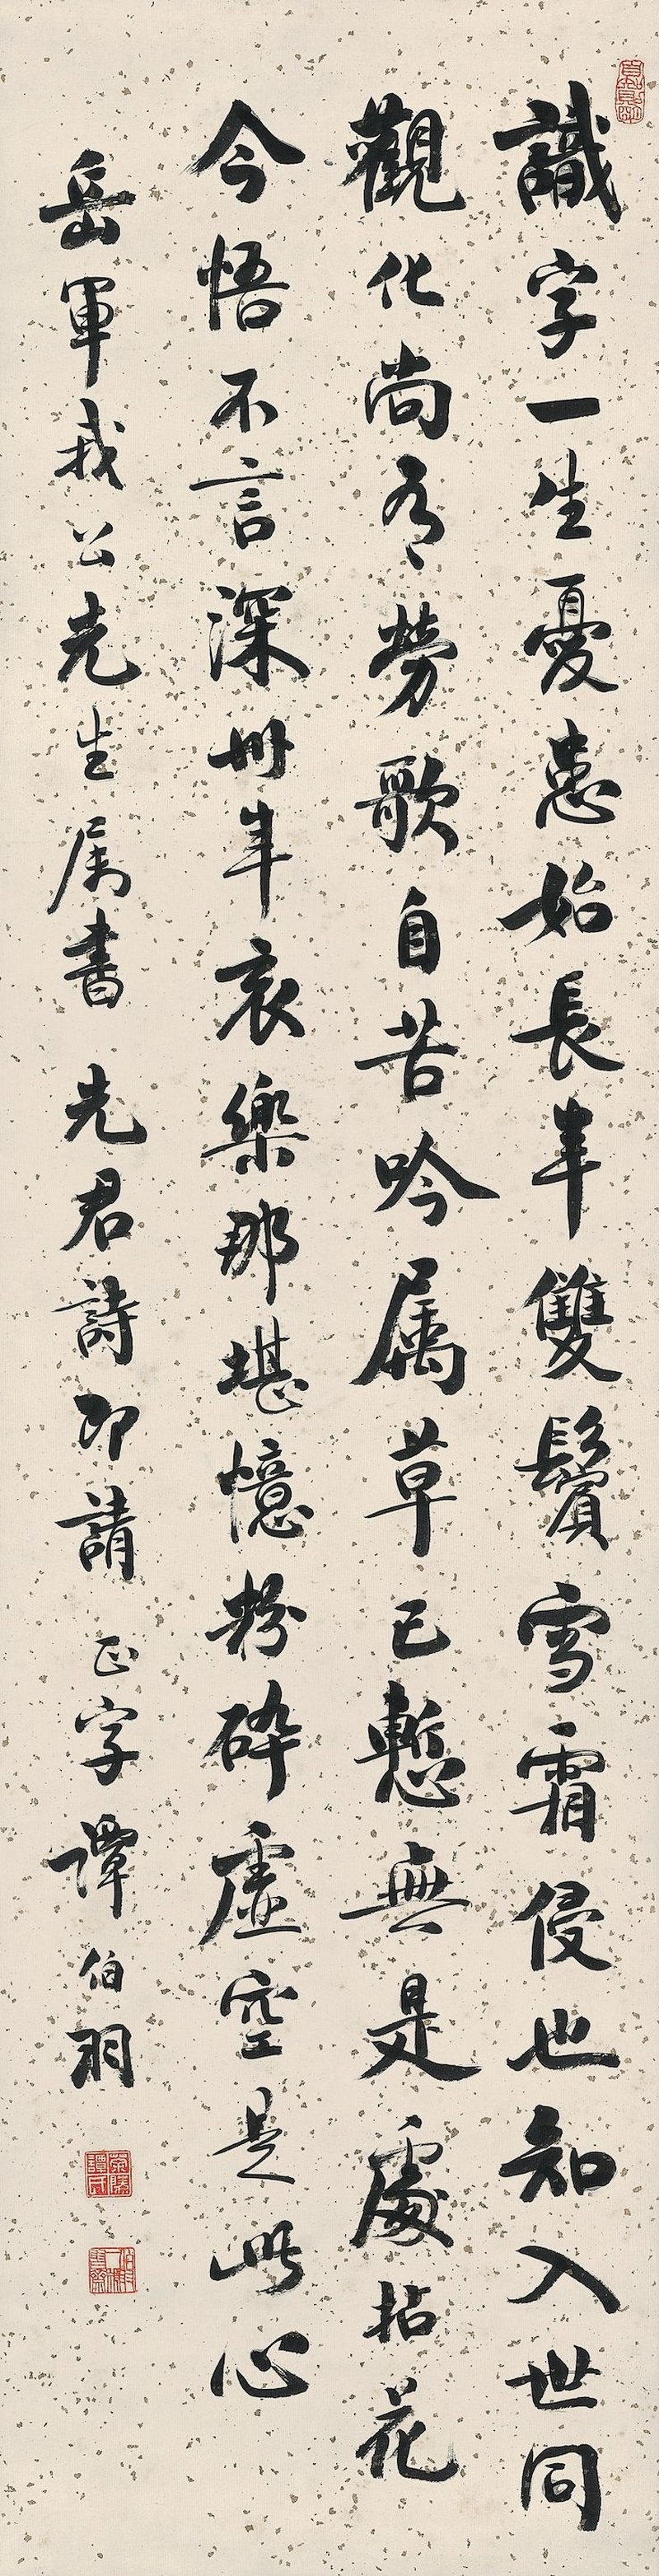 識字一生憂患始長年雙鬢雪霜侵也知入世同
觀化尚有勞歌自苦吟属草已慙無是處拈花
今悟不言深卅年哀樂那堪憶粉碎虛空是此心
岳軍我公先生属書 先君詩即請 正字 譚伯羽
茶陵譚氏